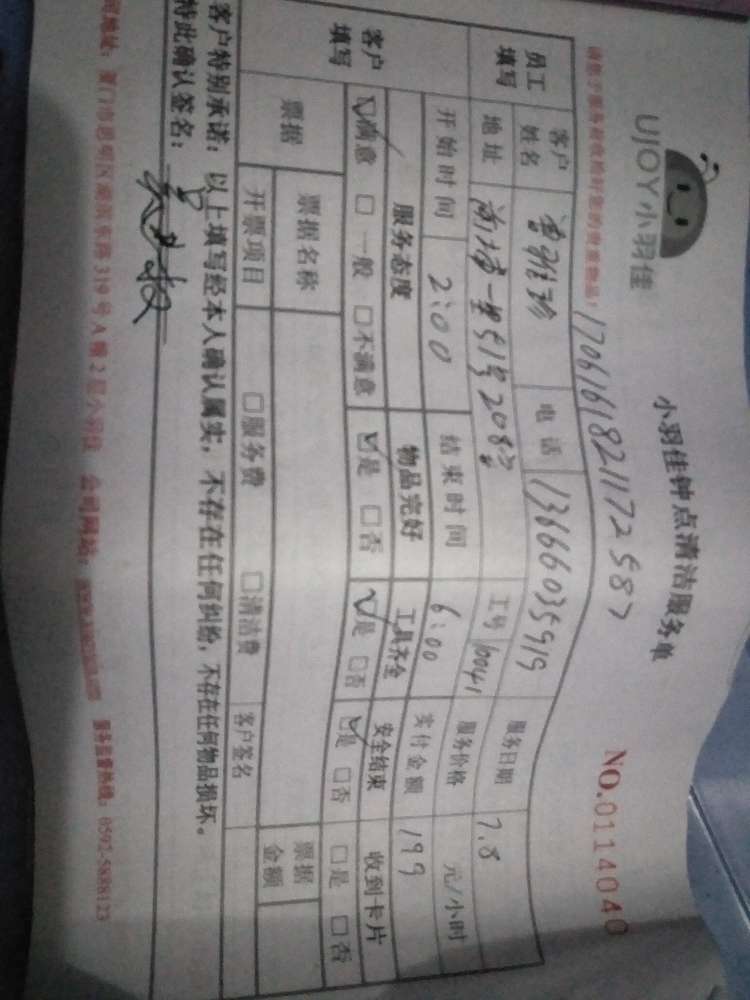 UJOY小羽佳
小羽佳钟点清洁服务单
NO.0114040
1706161821172587
员工填写
客户姓名 曾雅珍 电话 13666035919 服务日期 7.8
地址 51号208室 工号 10041 服务价格 元/小时
开始时间 2:00 结束时间 6:00 实付金额 199
客户填写
服务态度 物品完好 工具齐全 安全结束 收到卡片
☑满意 □一般 □不满意 ☑是 □否 ☑是 □否 ☑是 □否 □是 □否
票据 票据名称 票据金额
开票项目 □服务费 □清洁费 客户签名
客户特别承诺：以上填写经本人确认属实，不存在任何纠纷，不存在任何物品损坏。
特此确认签名：
厦门市思明区 319号A幢2层小羽佳 公司网站： 服务监督热线：0592-5888123